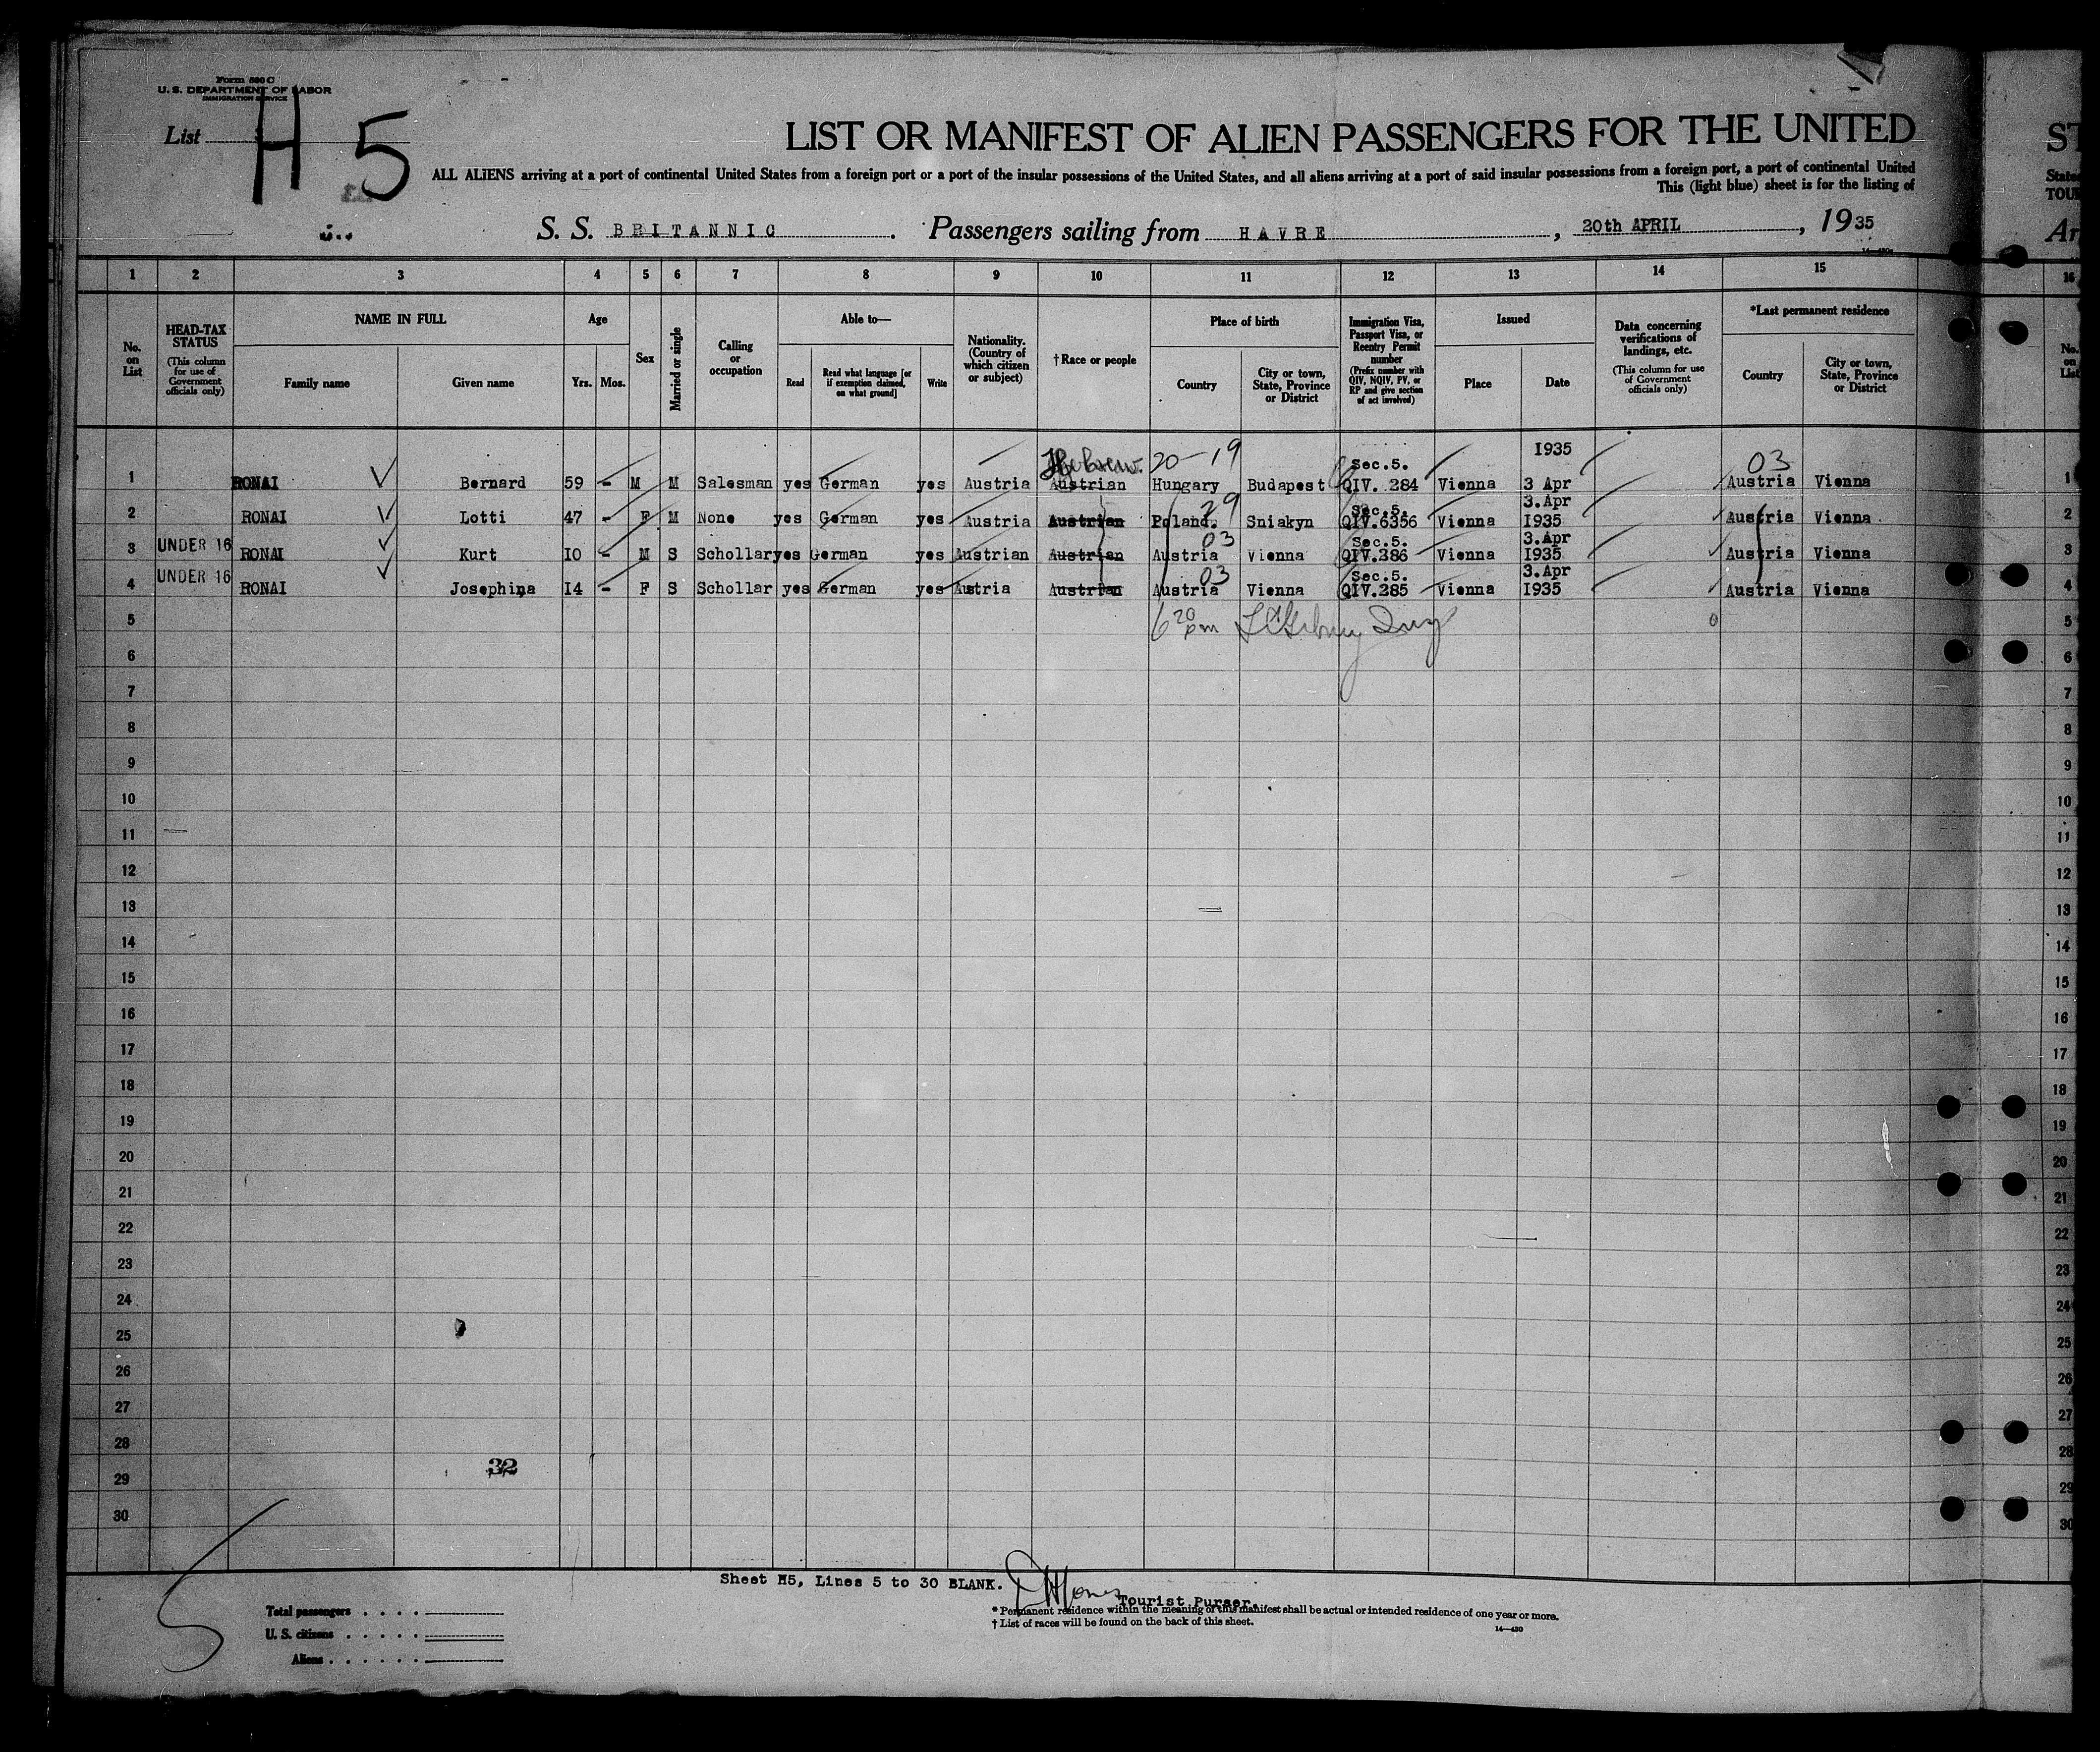 Form 500 C
U. S. DEPARTMENT OF LABOR
IMMIGRATION SERVICE
List H 5
LIST OR MANIFEST OF ALIEN PASSENGERS FOR THE UNITED
ST
ALL ALIENS arriving at a port of continental United States from a foreign port or a port of the insular possessions of the United States, and all aliens arriving at a port of said insular possessions from a foreign port, a port of continental United
State
This (light blue) sheet is for the listing of
TOU
S. S. BRITANNIC. Passengers sailing from HAVRE, 20th APRIL, 1935
Ar
1 2 3 4 5 6 7 8 9 10 11 12 13 14 15 16
No. on List
HEAD-TAX STATUS (This column for use of Government officials only)
NAME IN FULL
Family name Given name
Age
Yrs. Mos.
Sex
Married or single
Calling or occupation
Able to—
Read Read what language [or if exemption claimed, on what ground] Write
Nationality. (Country of which citizen or subject)
†Race or people
Place of birth
Country City or town, State, Province or District
Immigration Visa, Passport Visa, or Reentry Permit number (Prefix number with QIV, NQIV, PV, or RP and give section of act involved)
Issued
Place Date
Data concerning verifications of landings, etc. (This column for use of Government officials only)
*Last permanent residence
Country City or town, State, Province or District
No. on List
Hebrew. 20-19 Sec.5. 1935 03
1 RONAI Bernard 59 - M M Salesman yes German yes Austria Austrian Hungary Budapest QIV. 284 Vienna 3 Apr Austria Vienna 1
29 Sec.5. 3.Apr
2 RONAI Lotti 47 - F M None yes German yes Austria Austrian Poland. Sniakyn QIV.6356 Vienna I935 Austria Vienna 2
03 Sec.5. 3.Apr
3 UNDER 16 RONAI Kurt I0 - M S Schollar yes German yes Austrian Austrian Austria Vienna QIV.286 Vienna I935 Austria Vienna 3
03 Sec.5. 3.Apr
4 UNDER 16 RONAI Josephina I4 - F S Schollar yes German yes Austria Austrian Austria Vienna QIV.285 Vienna I935 Austria Vienna 4
5 6 20 pm 5
6 6
7 7
8 8
9 9
10 10
11 11
12 12
13 13
14 14
15 15
16 16
17 17
18 18
19 19
20 20
21 21
22 22
23 23
24 24
25 25
26 26
27 27
28 28
32
29 29
30 30
Sheet H5, Lines 5 to 30 BLANK.
Tourist Purser.
Total passengers
U. S. citizens
Aliens
* Permanent residence within the meaning of this manifest shall be actual or intended residence of one year or more.
† List of races will be found on the back of this sheet.
14—430